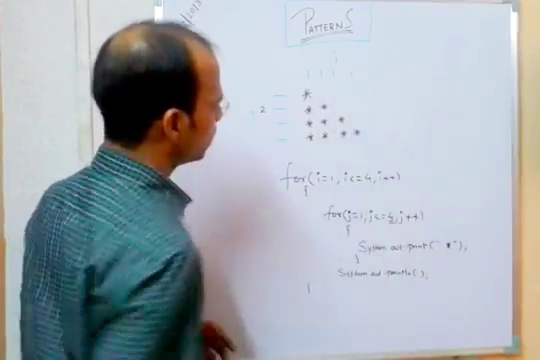 /2013
PATTERNS
*
2 * *
* * *
* * * *
for(i=1, i<=4, i++)
{
for(j=1, j<=4, j++)
{
System.out.print(" *");
}
System.out.println();
}